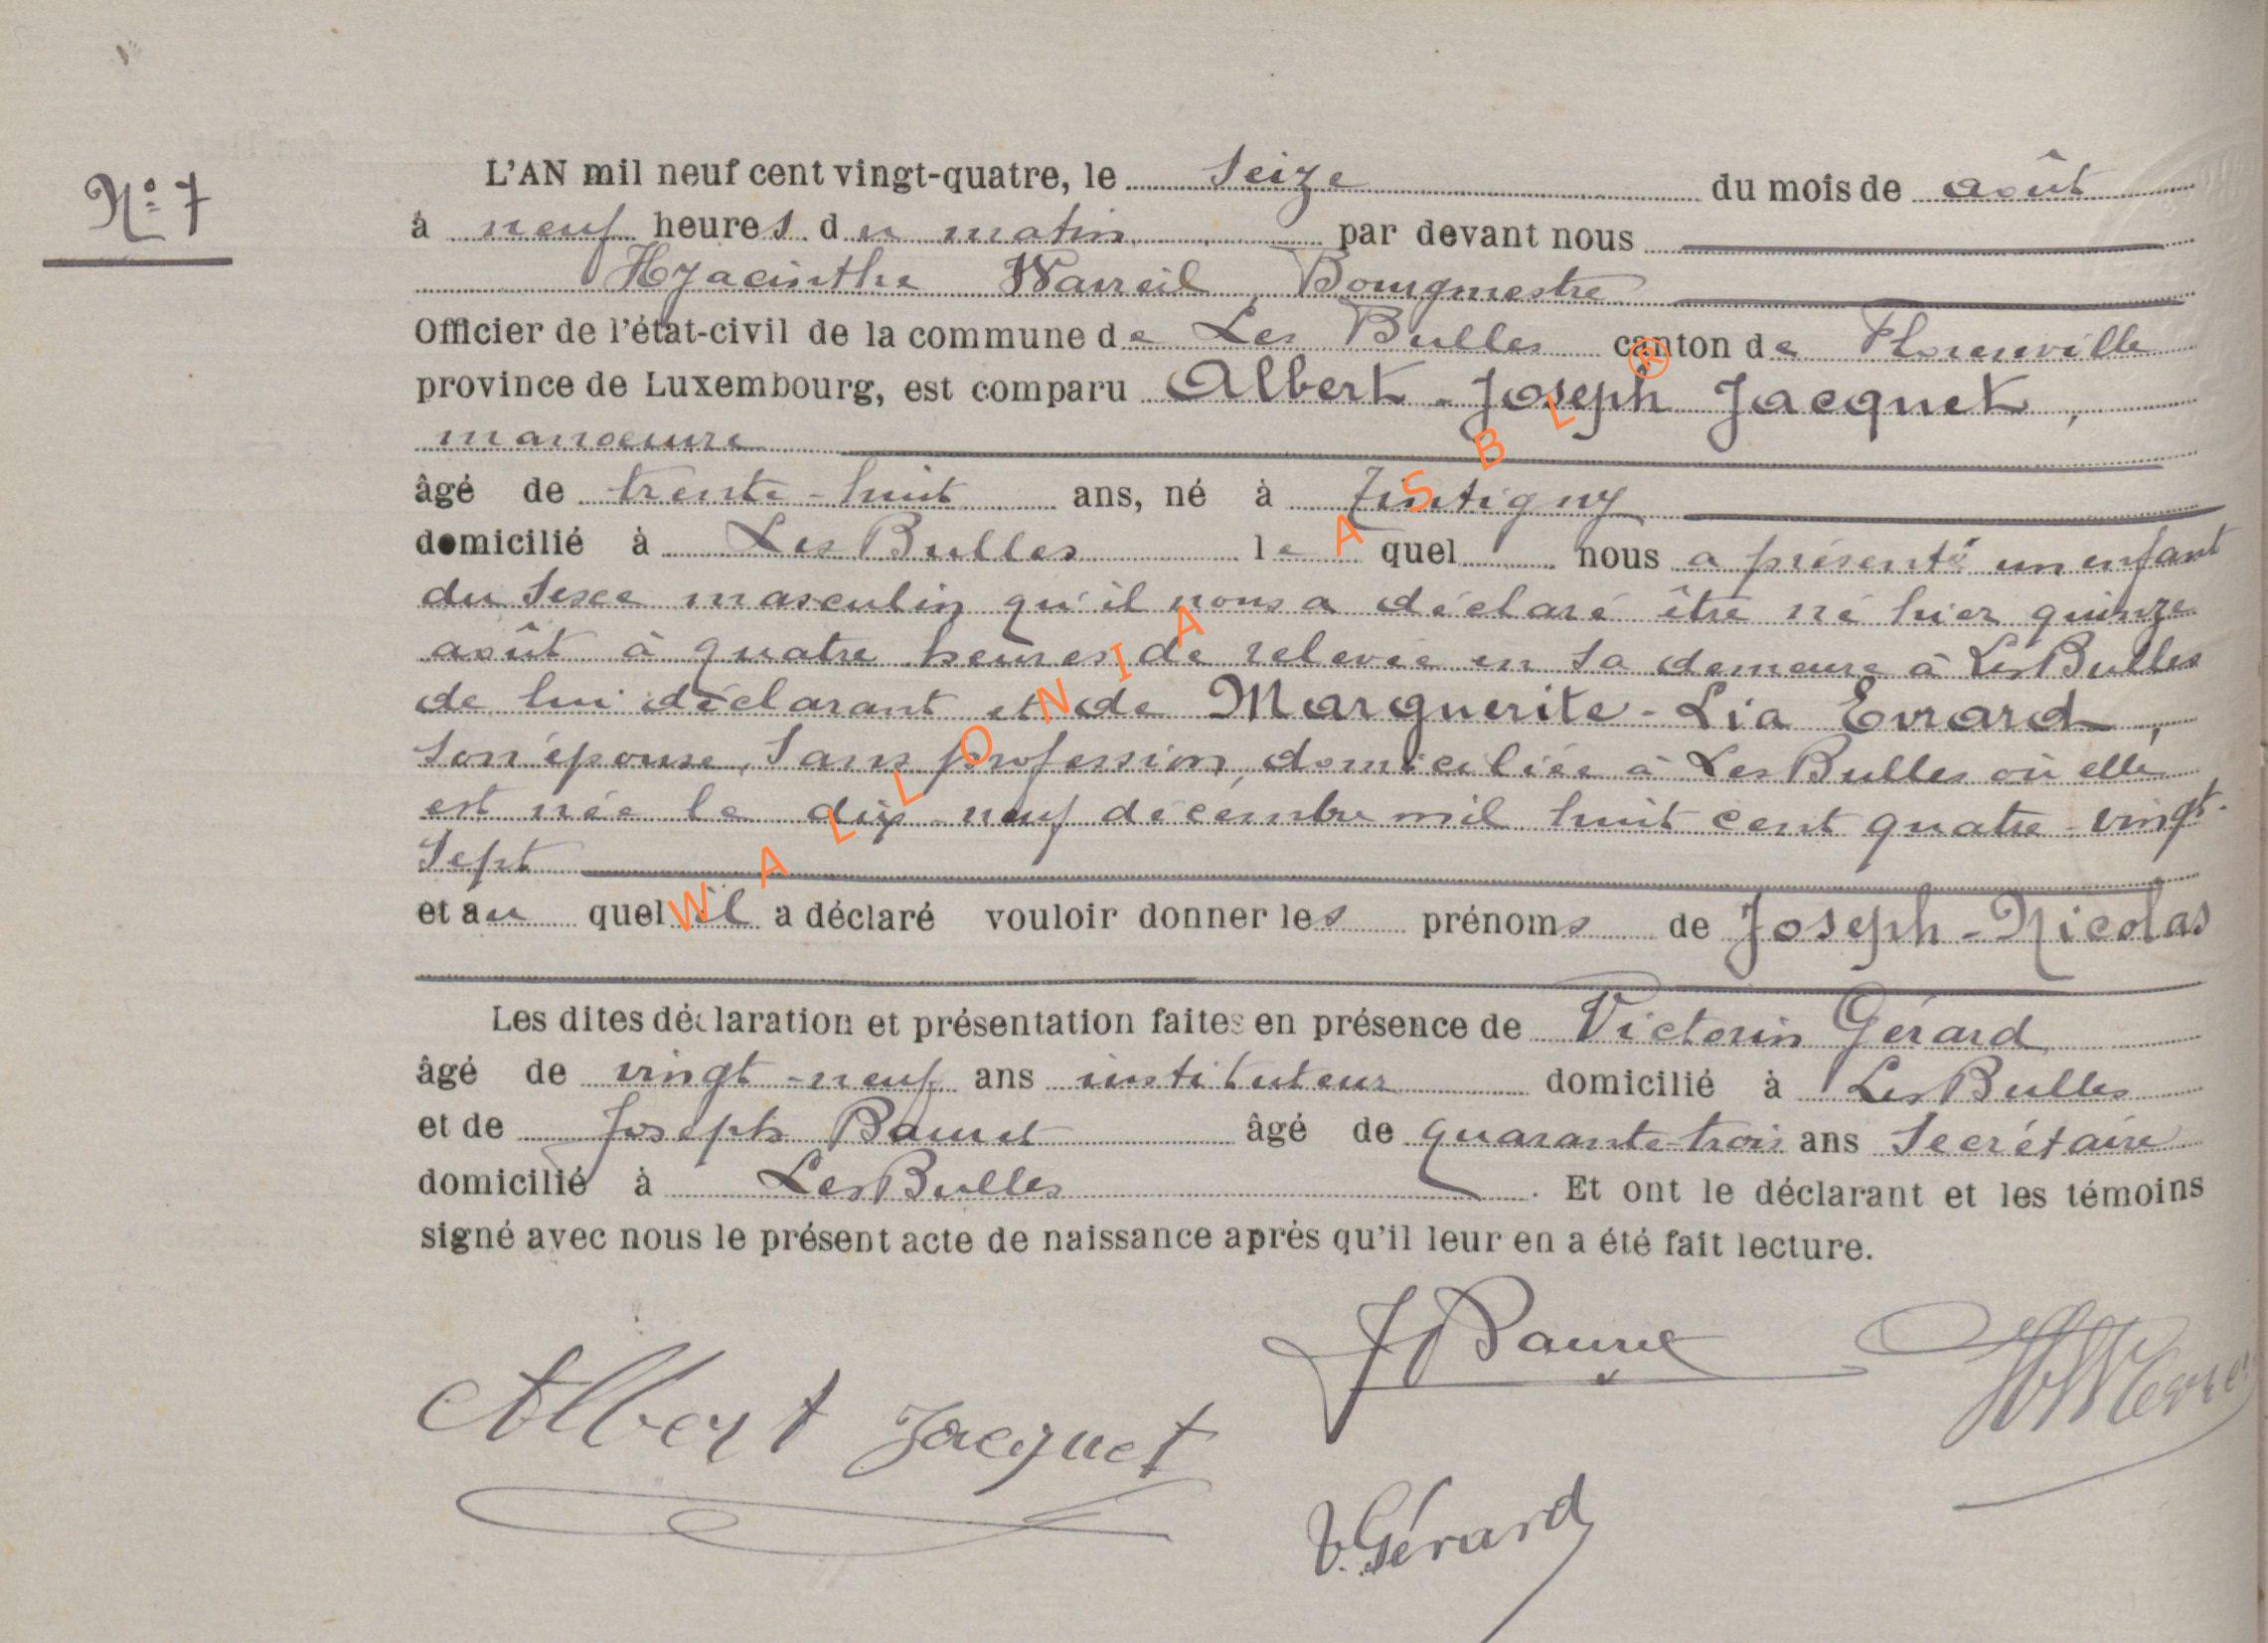 N° 7
L'AN mil neuf cent vingt-quatre, le seize du mois de août
à neuf heures du matin par devant nous
Hyacinthe Bourgmestre
Officier de l'état-civil de la commune de Les Bulles canton de Florenville
province de Luxembourg, est comparu Albert-Joseph Jacquet,
manoeuvre
âgé de trente-huit ans, né à Tintigny
domicilié à Les Bulles lequel nous a présenté un enfant
du sexe masculin qu'il nous a déclaré être né hier quinze
août à quatre heures de relevée en sa demeure à Les Bulles
de lui déclarant et de Marguerite-Lia Evrard,
son épouse, sans profession, domiciliée à Les Bulles où elle
est née le dix-neuf décembre mil huit cent quatre-vingt-
sept
et auquel il a déclaré vouloir donner les prénoms de Joseph-Nicolas
Les dites déclaration et présentation faites en présence de Victorin Gérard
âgé de vingt-neuf ans instituteur domicilié à Les Bulles
et de Joseph âgé de quarante-trois ans secrétaire
domicilié à Les Bulles. Et ont le déclarant et les témoins
signé avec nous le présent acte de naissance après qu'il leur en a été fait lecture.
Albert Jacquet
V. Gérard
WALLONIA ASBL ®